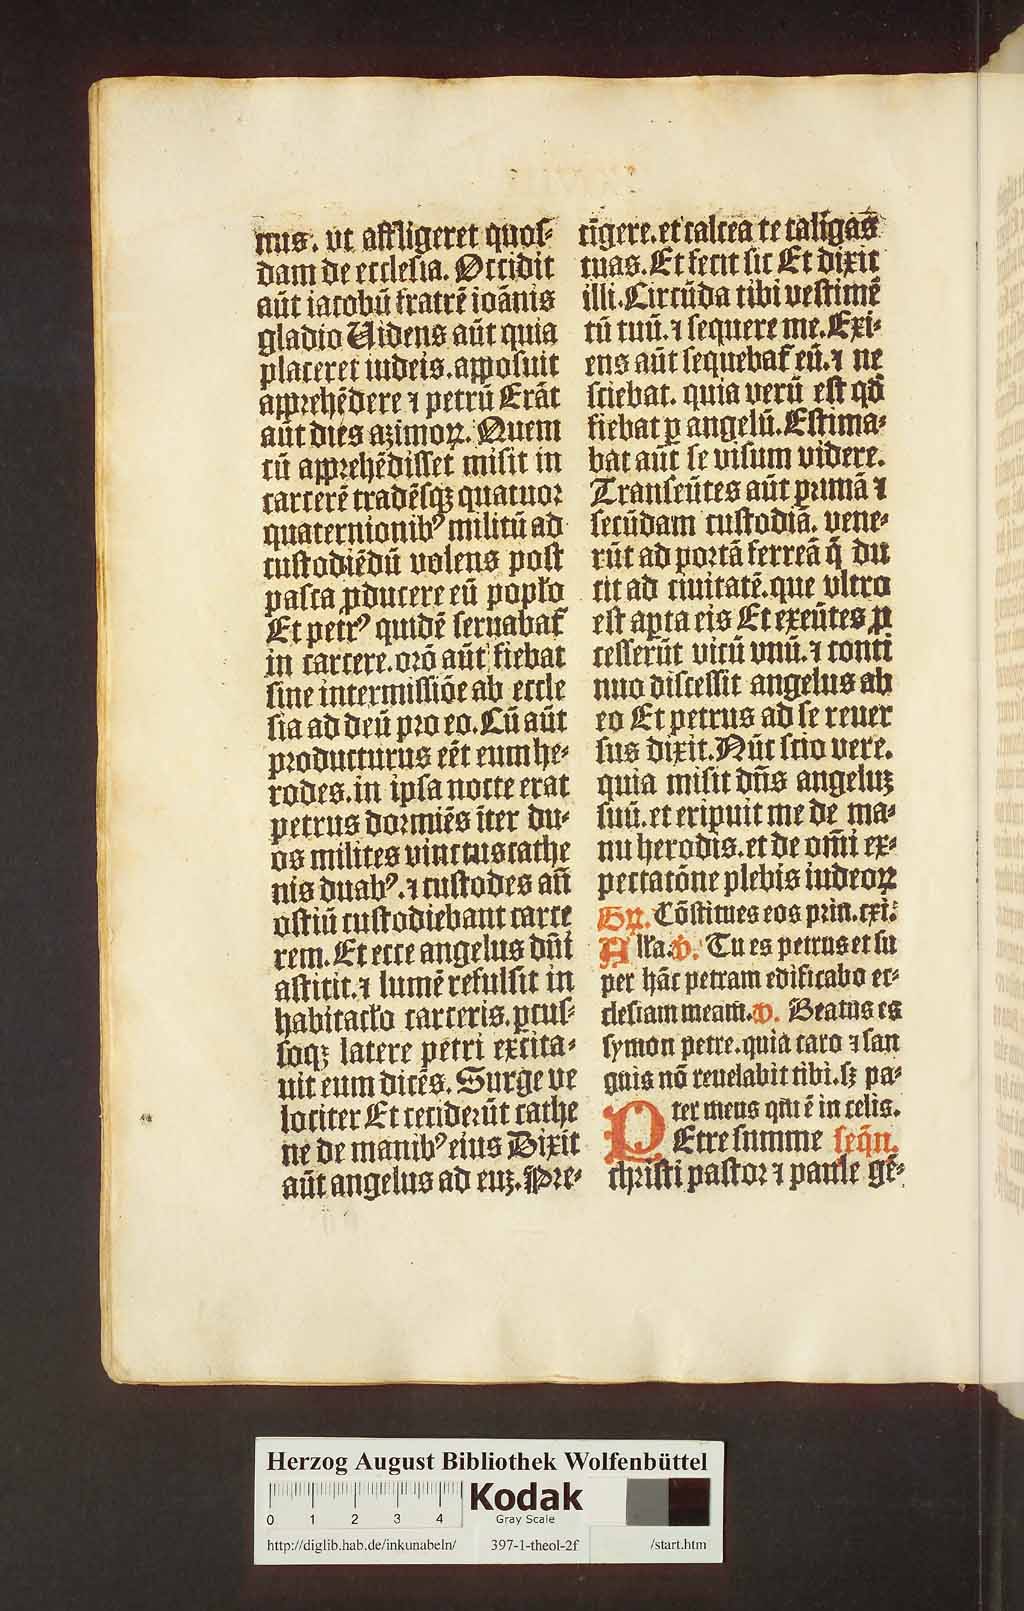 nus. vt affligeret quoſ-
dam de eccleſia. Occidit
aūt iacobū fratrē ioānis
gladio Uidens aūt quia
placeret iudeis. appoſuit
apprehēdere ⁊ petrū Erāt
aūt dies azimoꝝ. Quem
cū apprehēdiſſet miſit in
carcerē tradēſqꝫ quatuor
quaternionibꝰ militū ad
cuſtodiēdū volens poſt
paſca ꝓducere eū popľo
Et petrꝰ quidē ſeruabat̄
in carcere. orō aūt fiebat
ſine intermiſſiōe ab eccle
ſia ad deū pro eo. Cū aūt
producturus eēt eum he-
rodes. in ipſa nocte erat
petrus dormiēs īter du-
os milites vinctus cathe
nis duabꝰ. ⁊ cuſtodes añ
oſtiū cuſtodiebant carce
rem. Et ecce angelus dn̄i
aſtitit. ⁊ lumē refulſit in
habitacľo carceris. ꝑcuſ-
ſoqꝫ latere petri excita-
uit eum dicēs. Surge ve
lociter Et ceciderūt cathe
ne de manibꝰ eius Dixit
aūt angelus ad euꝫ. Pre-
cīgere. et calcea te caligas̄
tuas. Et fecit ſic Et dixit
illi. Circūda tibi veſtimē
tū tuū. ⁊ ſequere me. Exi-
ens aūt ſequebat̄ eū. ⁊ ne
ſciebat. quia verū eſt qđ
fiebat ꝑ angelū. Eſtima-
bat aūt ſe viſum videre.
Tranſeūtes aūt primā ⁊
ſecūdam cuſtodiā. vene-
rūt ad portā ferreā q̄ du
cit ad ciuitatē. que vltro
eſt aꝑta eis Et exeūtes ꝓ
ceſſerūt vicū vnū. ⁊ conti
nuo diſceſſit angelus ab
eo Et petrus ad ſe reuer
ſus dixit. Nūc ſcio vere.
quia miſit dn̄s angeluꝫ
ſuū. et eripuit me de ma-
nu herodis. et de om̄i ex-
pectatōne plebis iudeoꝝ
Gꝝ. Cōſtitues eos prin. cxi.
Alľa. v. Tu es petrus et ſu
per hāc petram edificabo ec-
cleſiam meam̄. v. Beatus es
ſymon petre. quia caro ⁊ ſan
guis nō reuelabit tibi. ſꝫ pa-
ter meus qui ē in celis.
PEtre ſumme ſeq̄n.
chriſti paſtor ⁊ paule gē-
Herzog August Bibliothek Wolfenbüttel
0 1 2 3 4
Kodak
Gray Scale
http://diglib.hab.de/inkunabeln/ 397-1-theol-2f /start.htm